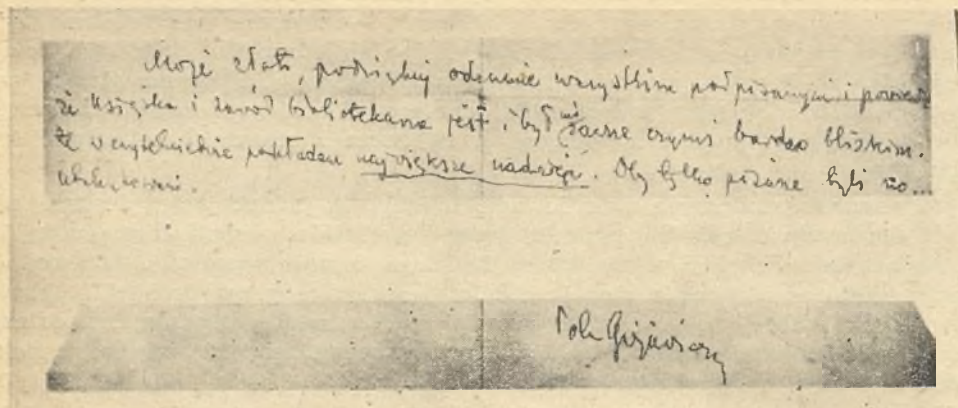 Moje złoto, podziękuj odemnie wszystkim podpisanym i powiedz
że książka i zawód bibliotekarza jest i był mi zawsze czymś bardzo bliskim.
Że w czytelnictwie pokładam największe nadzieje. Oby tylko pisarze byli no...
utalentowani.
Pola